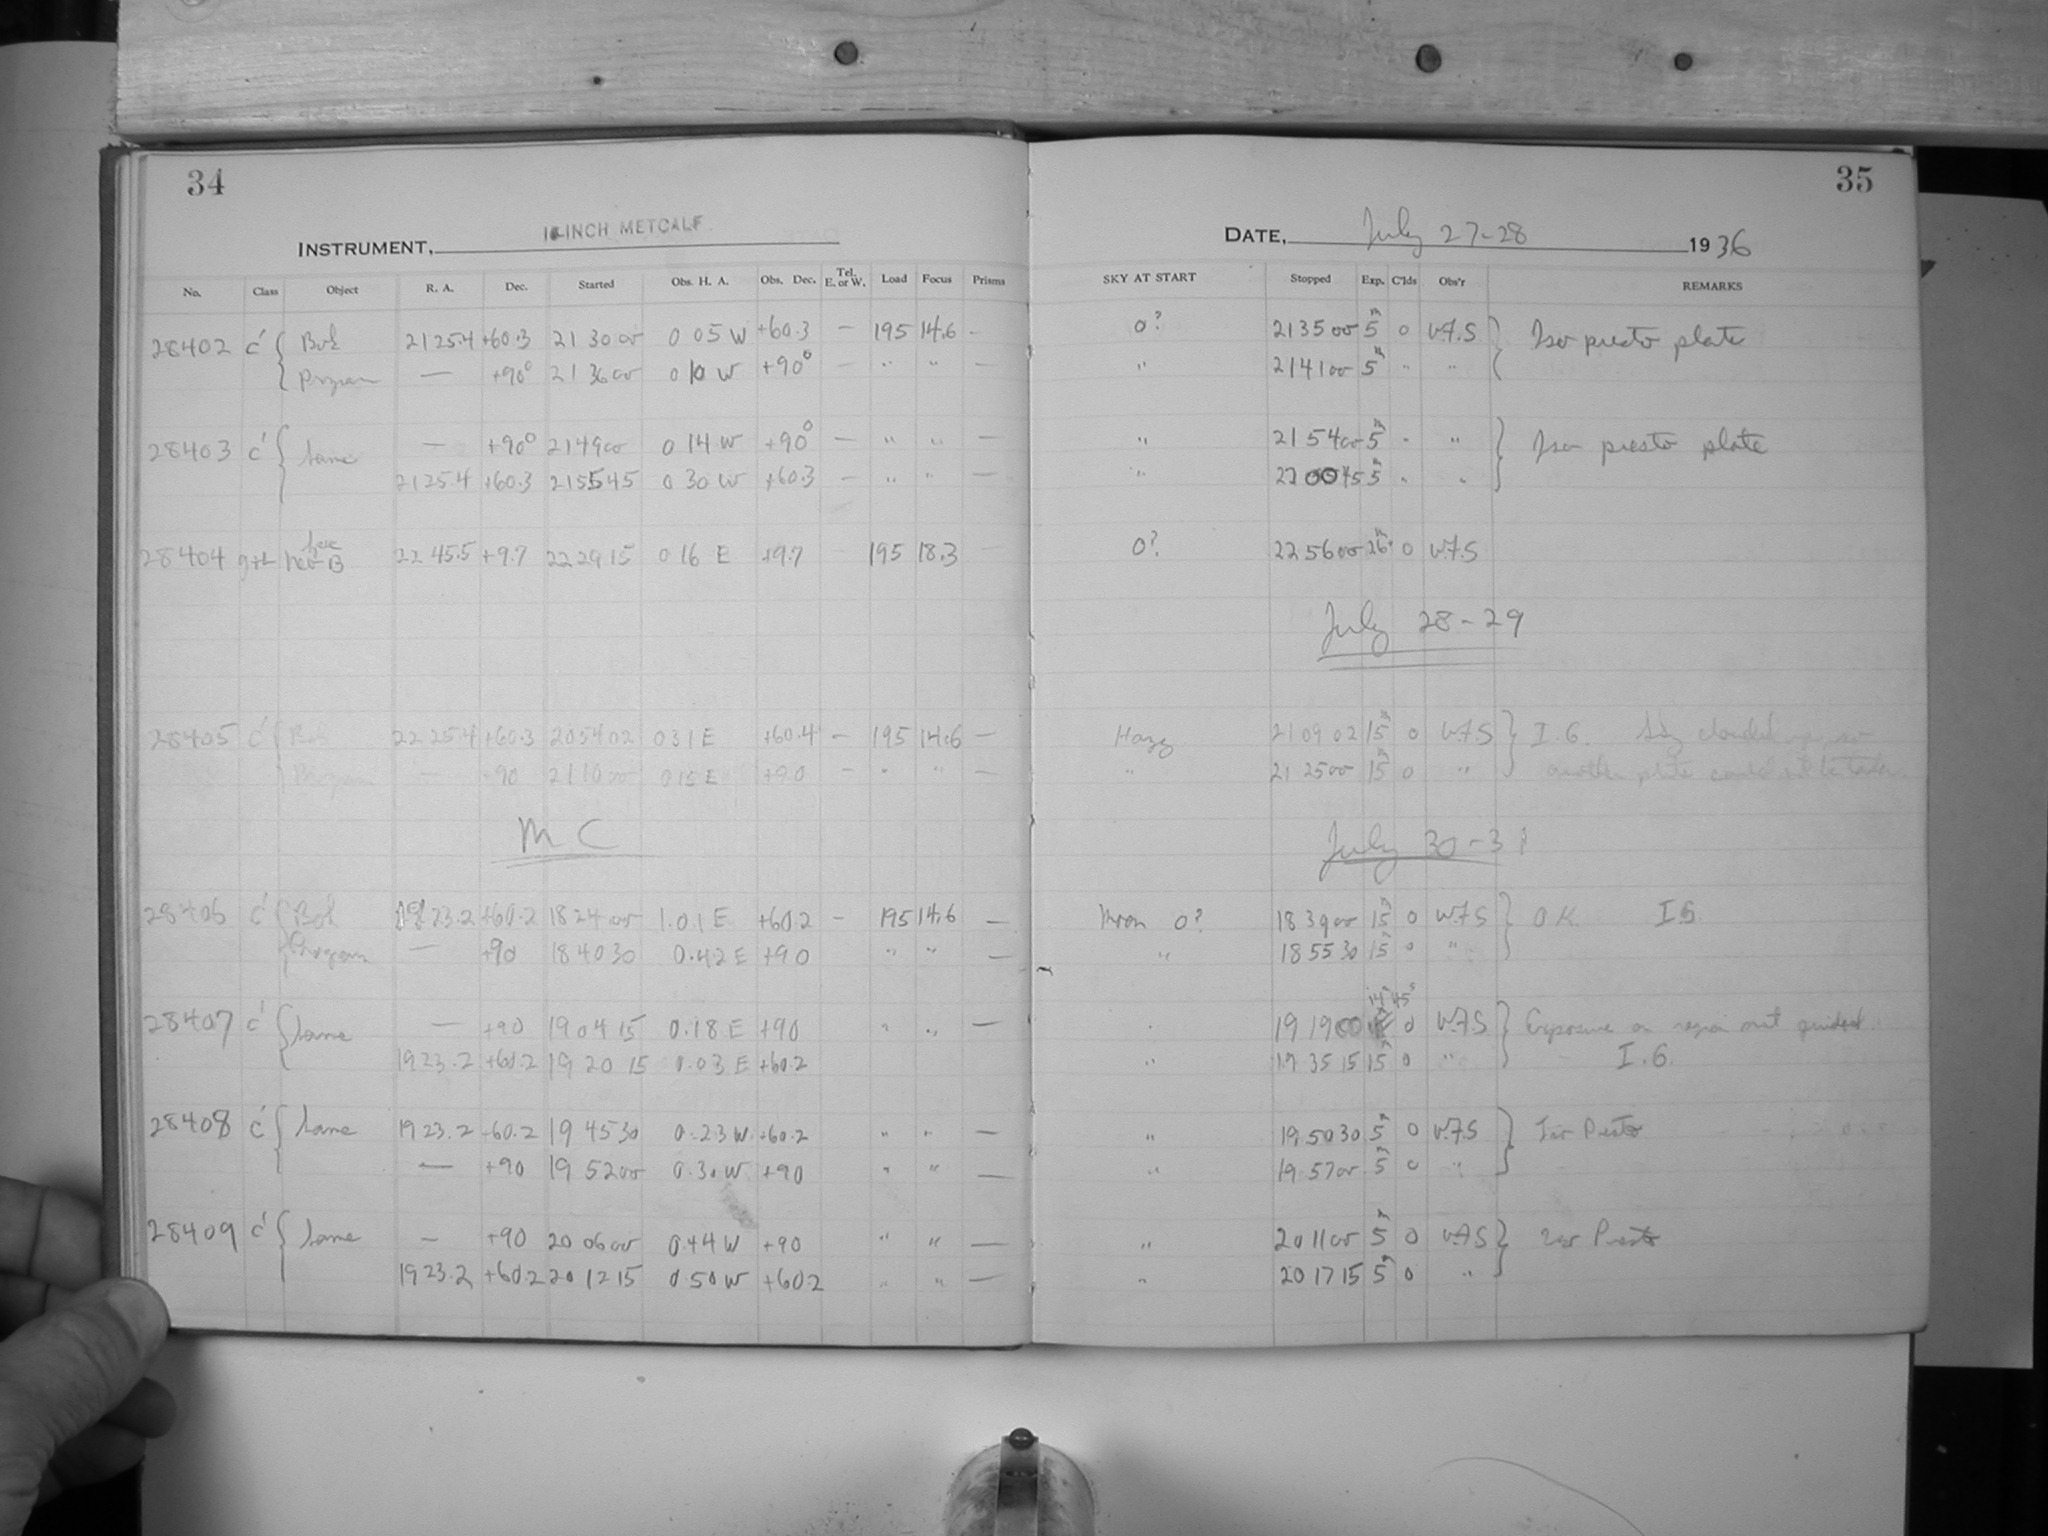 34
35
INSTRUMENT, INCH METCALF
DATE, July 27-28 1936
No. Class Object R. A. Dec. Started Obs. H. A. Obs. Dec. Tel. E. or W. Load Focus Prisms SKY AT START Stopped Exp. C'lds Obs'r REMARKS
28402 c' Bok 21 25.4 +60.3 21 30 00 0 05 W +60.3 - 195 14.6 - 0? 21 35 00 5m 0 W.F.S Iso presto plate
Program — +90° 21 36 00 0 10 W +90° - " " - " 21 41 00 5m " "
28403 c' Same — +90° 21 49 00 0 14 W +90° - " " - " 21 54 00 5m " " Iso presto plate
21 25.4 +60.3 21 55 45 0 30 W +60.3 - " " - " 22 00 45 5m " "
28404 22 45.5 +9.7 22 29 15 0 16 E +9.7 - 195 18.3 - 0? 22 56 00 26m 0 W.F.S
July 28-29
28405 c' Bok 22 25.4 +60.3 20 54 02 0 31 E +60.4 - 195 14.6 - Hazy 21 09 02 15m 0 W.F.S I.G. Sky clouded up, so
Program — +90 21 10 00 0 15 E +90 - " " - " 21 25 00 15m 0 " another plate could not be taken
M C
July 30-31
28406 c' Bok 19 23.2 +60.2 18 24 00 1.01 E +60.2 - 195 14.6 - Moon 0? 18 39 00 15m 0 W.F.S O.K. I.G.
Program — +90 18 40 30 0.42 E +90 " " - " 18 55 30 15m 0 "
28407 c' Same — +90 19 04 15 0.18 E +90 " " - " 19 19 00 14m 45s 0 W.F.S Exposure on region not guided
19 23.2 +60.2 19 20 15 0.03 E +60.2 " 19 35 15 15m 0 " I.G.
28408 c' Same 19 23.2 +60.2 19 45 30 0.23 W +60.2 " " - " 19 50 30 5m 0 W.F.S Iso Presto
— +90 19 52 00 0.30 W +90 " " - " 19 57 00 5m 0 "
28409 c' Same — +90 20 06 00 0.44 W +90 " " - " 20 11 00 5m 0 W.F.S Iso Presto
19 23.2 +60.2 20 12 15 0.50 W +60.2 " " - " 20 17 15 5m 0 "